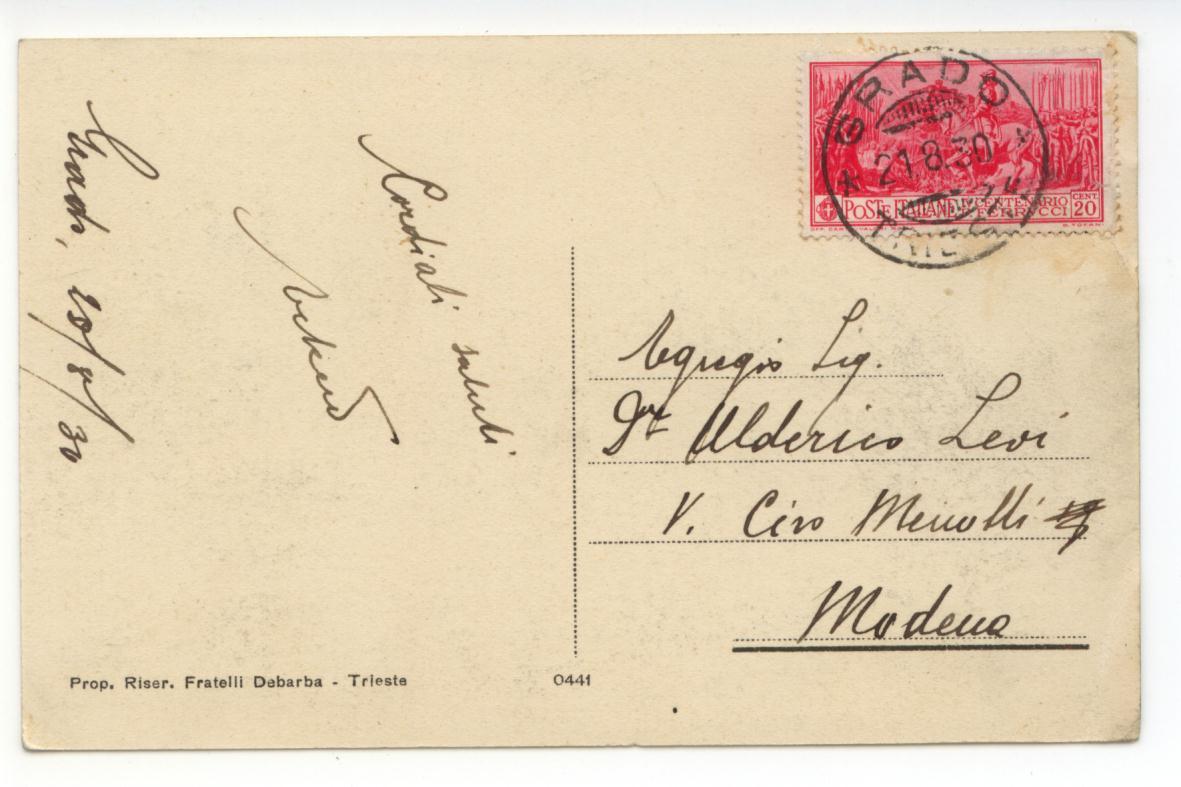 Grado, 20/8/30
Cordiali saluti
GRADO
21.8.30
POSTE ITALIANE IV CENTENARIO
FERRUCCI
CENT.
20
Egregio Sig.
Dr Alderico Levi
V. Ciro Menotti
Modena
Prop. Riser. Fratelli Debarba - Trieste
0441